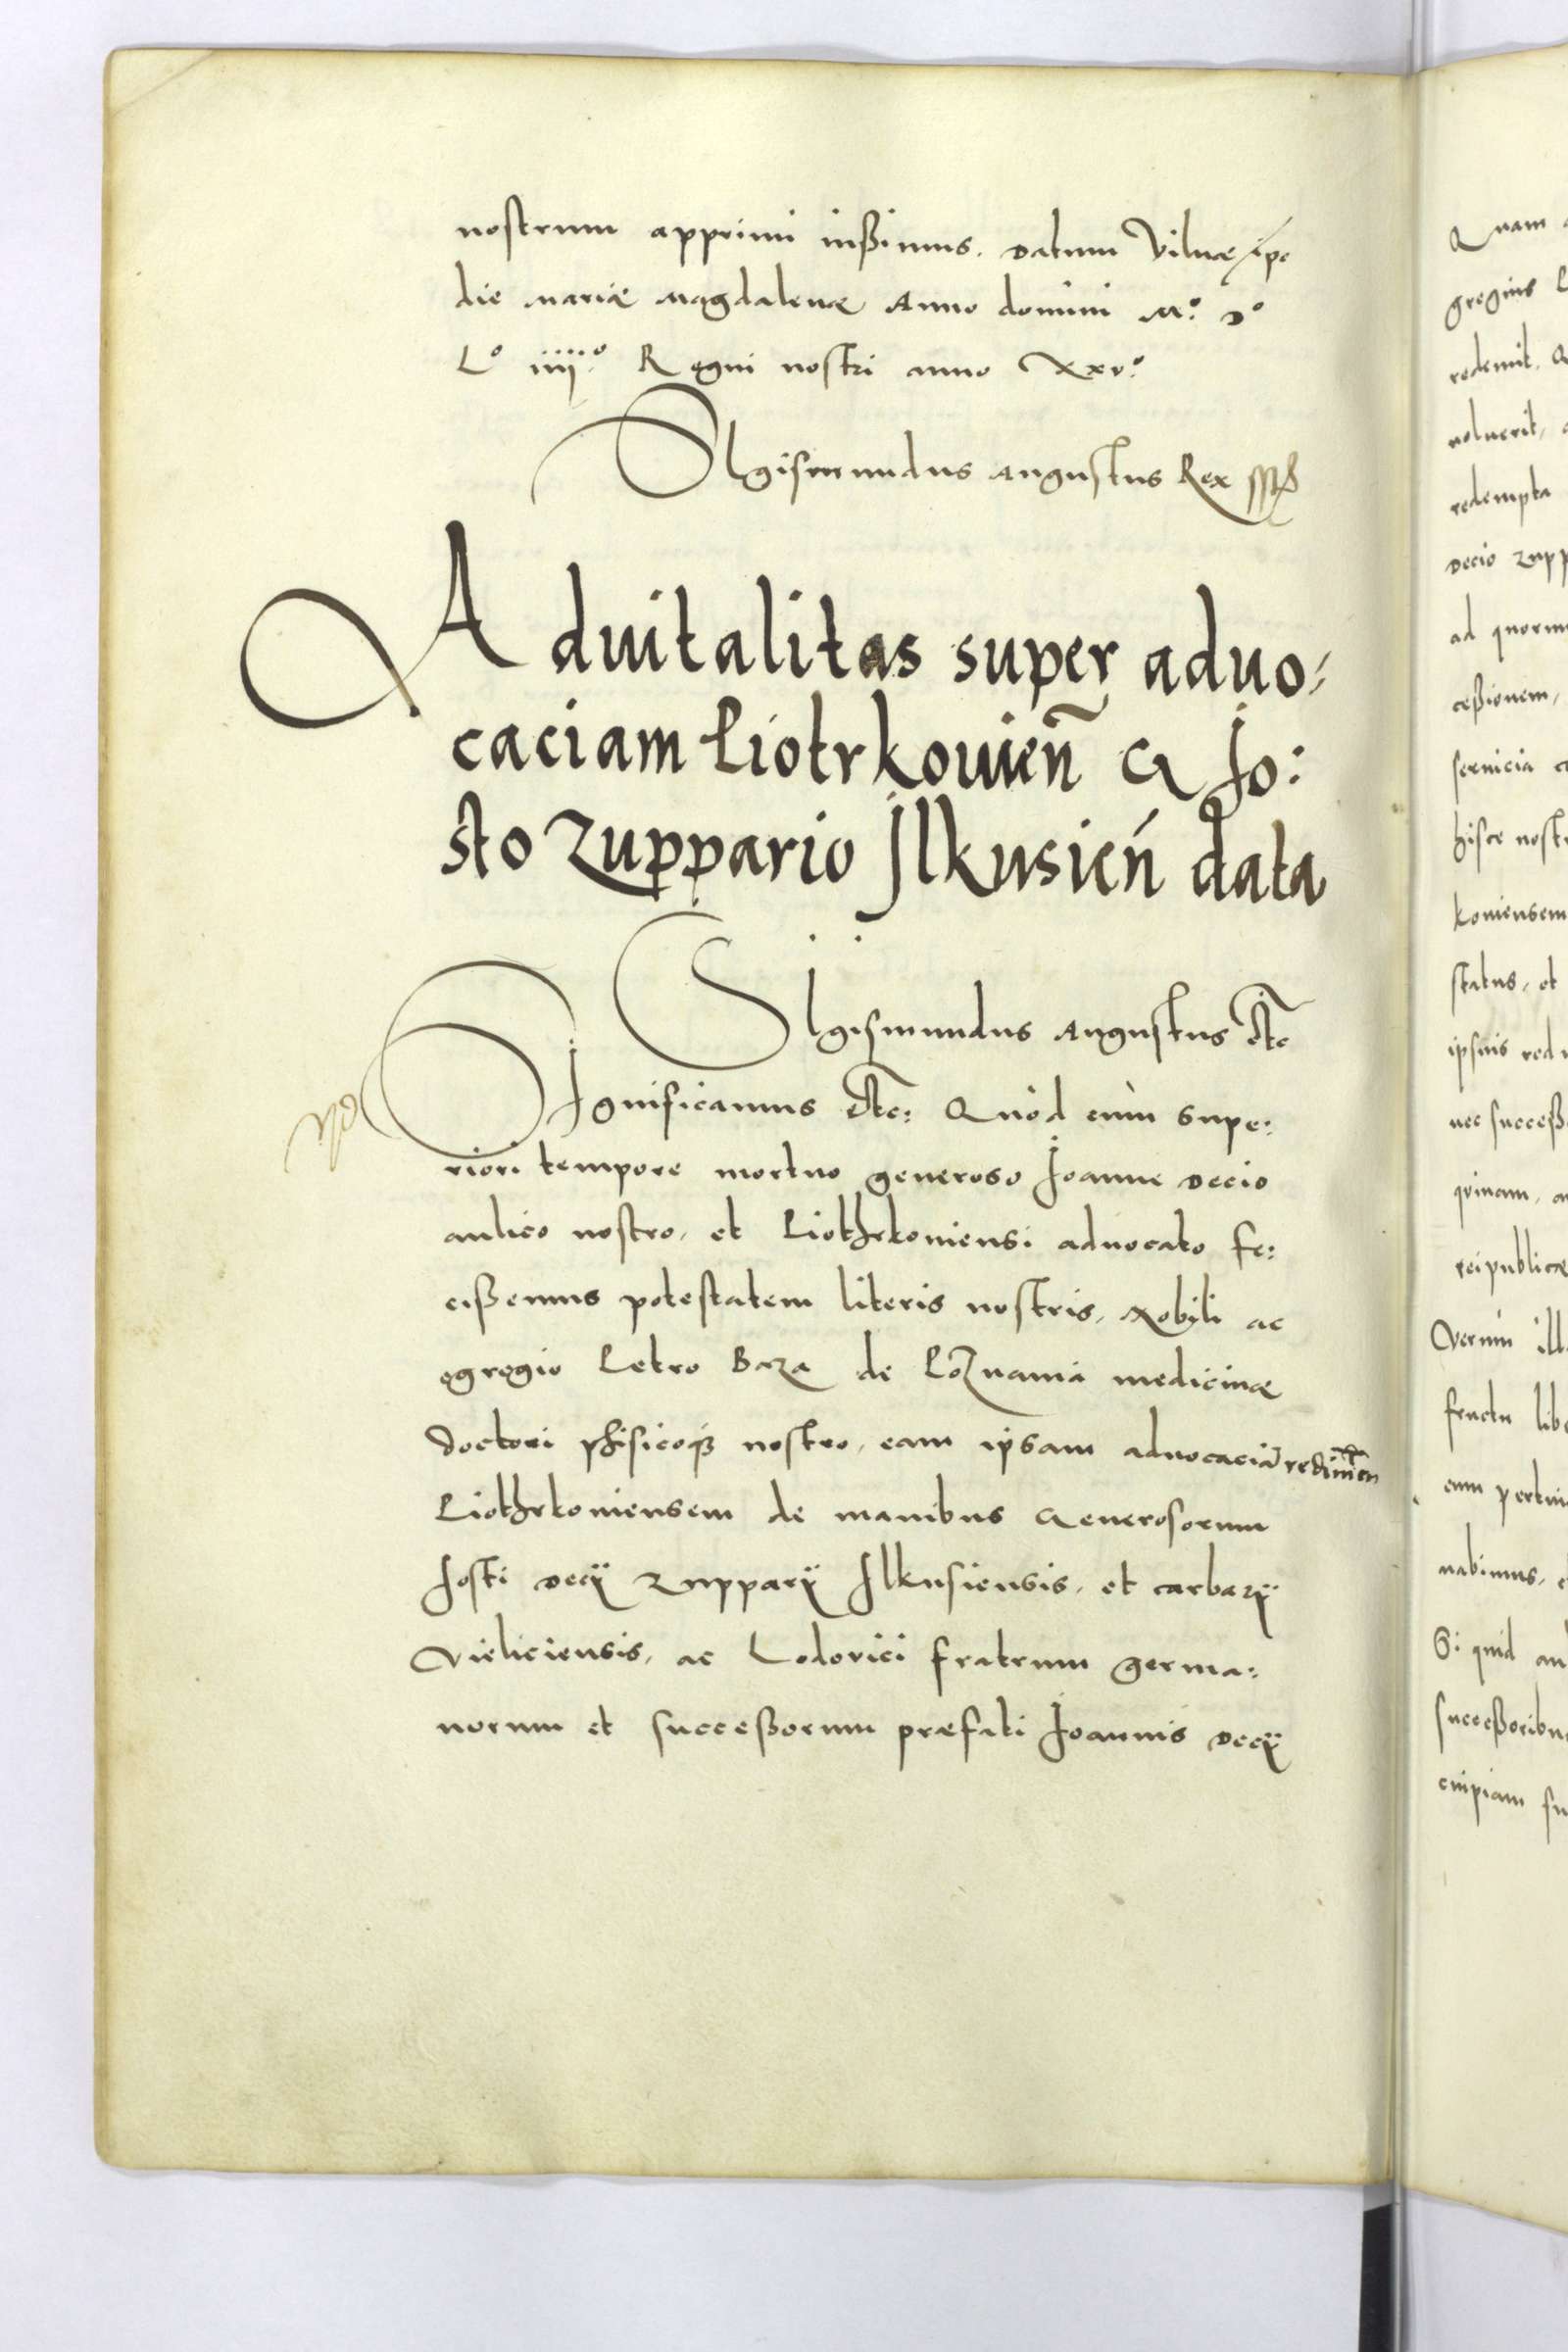 nostrum apprimi iußimus. Datum Vilnæ ipo
die Mariæ Magdalenæ Anno domini M.º D.º
L.º iiij.º Regni nostri anno XXV.º
SIgismundus Augustus Rex sst
Aduitalitas super aduo=
caciam Piotrkouień G Jo:
sto Zuppario Jlkusień data
SIgismundus Augustus etc
SIgnificamus etc: Quòd cùm supe:
riori tempore mortuo generoso Joanne Decio
aulico nostro, et Piothrkouiensi aduocato fe:
cißemus potestatem literis nostris, Nobili ac
egregio Petro Baza de Poznania medicinæ
doctori phisicoq3 nostro, eam ipsam aduocaciã
Piothrkouiensem de manibus Generosorum
Josti Decÿ Zupparÿ Jlkusiensis, et carbarÿ
Vieliciensis, ac Lodovici fratrum germa:
norum et succeßorum præfati Joannis Decÿ
Quam
gregius
redemit.
voluerit,
redempta
Decio Zupp
ad quorum
ceßionem,
seruicia
hisce nostr
kouiensem
status, et
ipsius red
nec succeß
quinam,
reipublicæ
Verùm ill
fructu lib
eum pertin
nabimus,
Si quid au
succeßoribu
cuipiam su